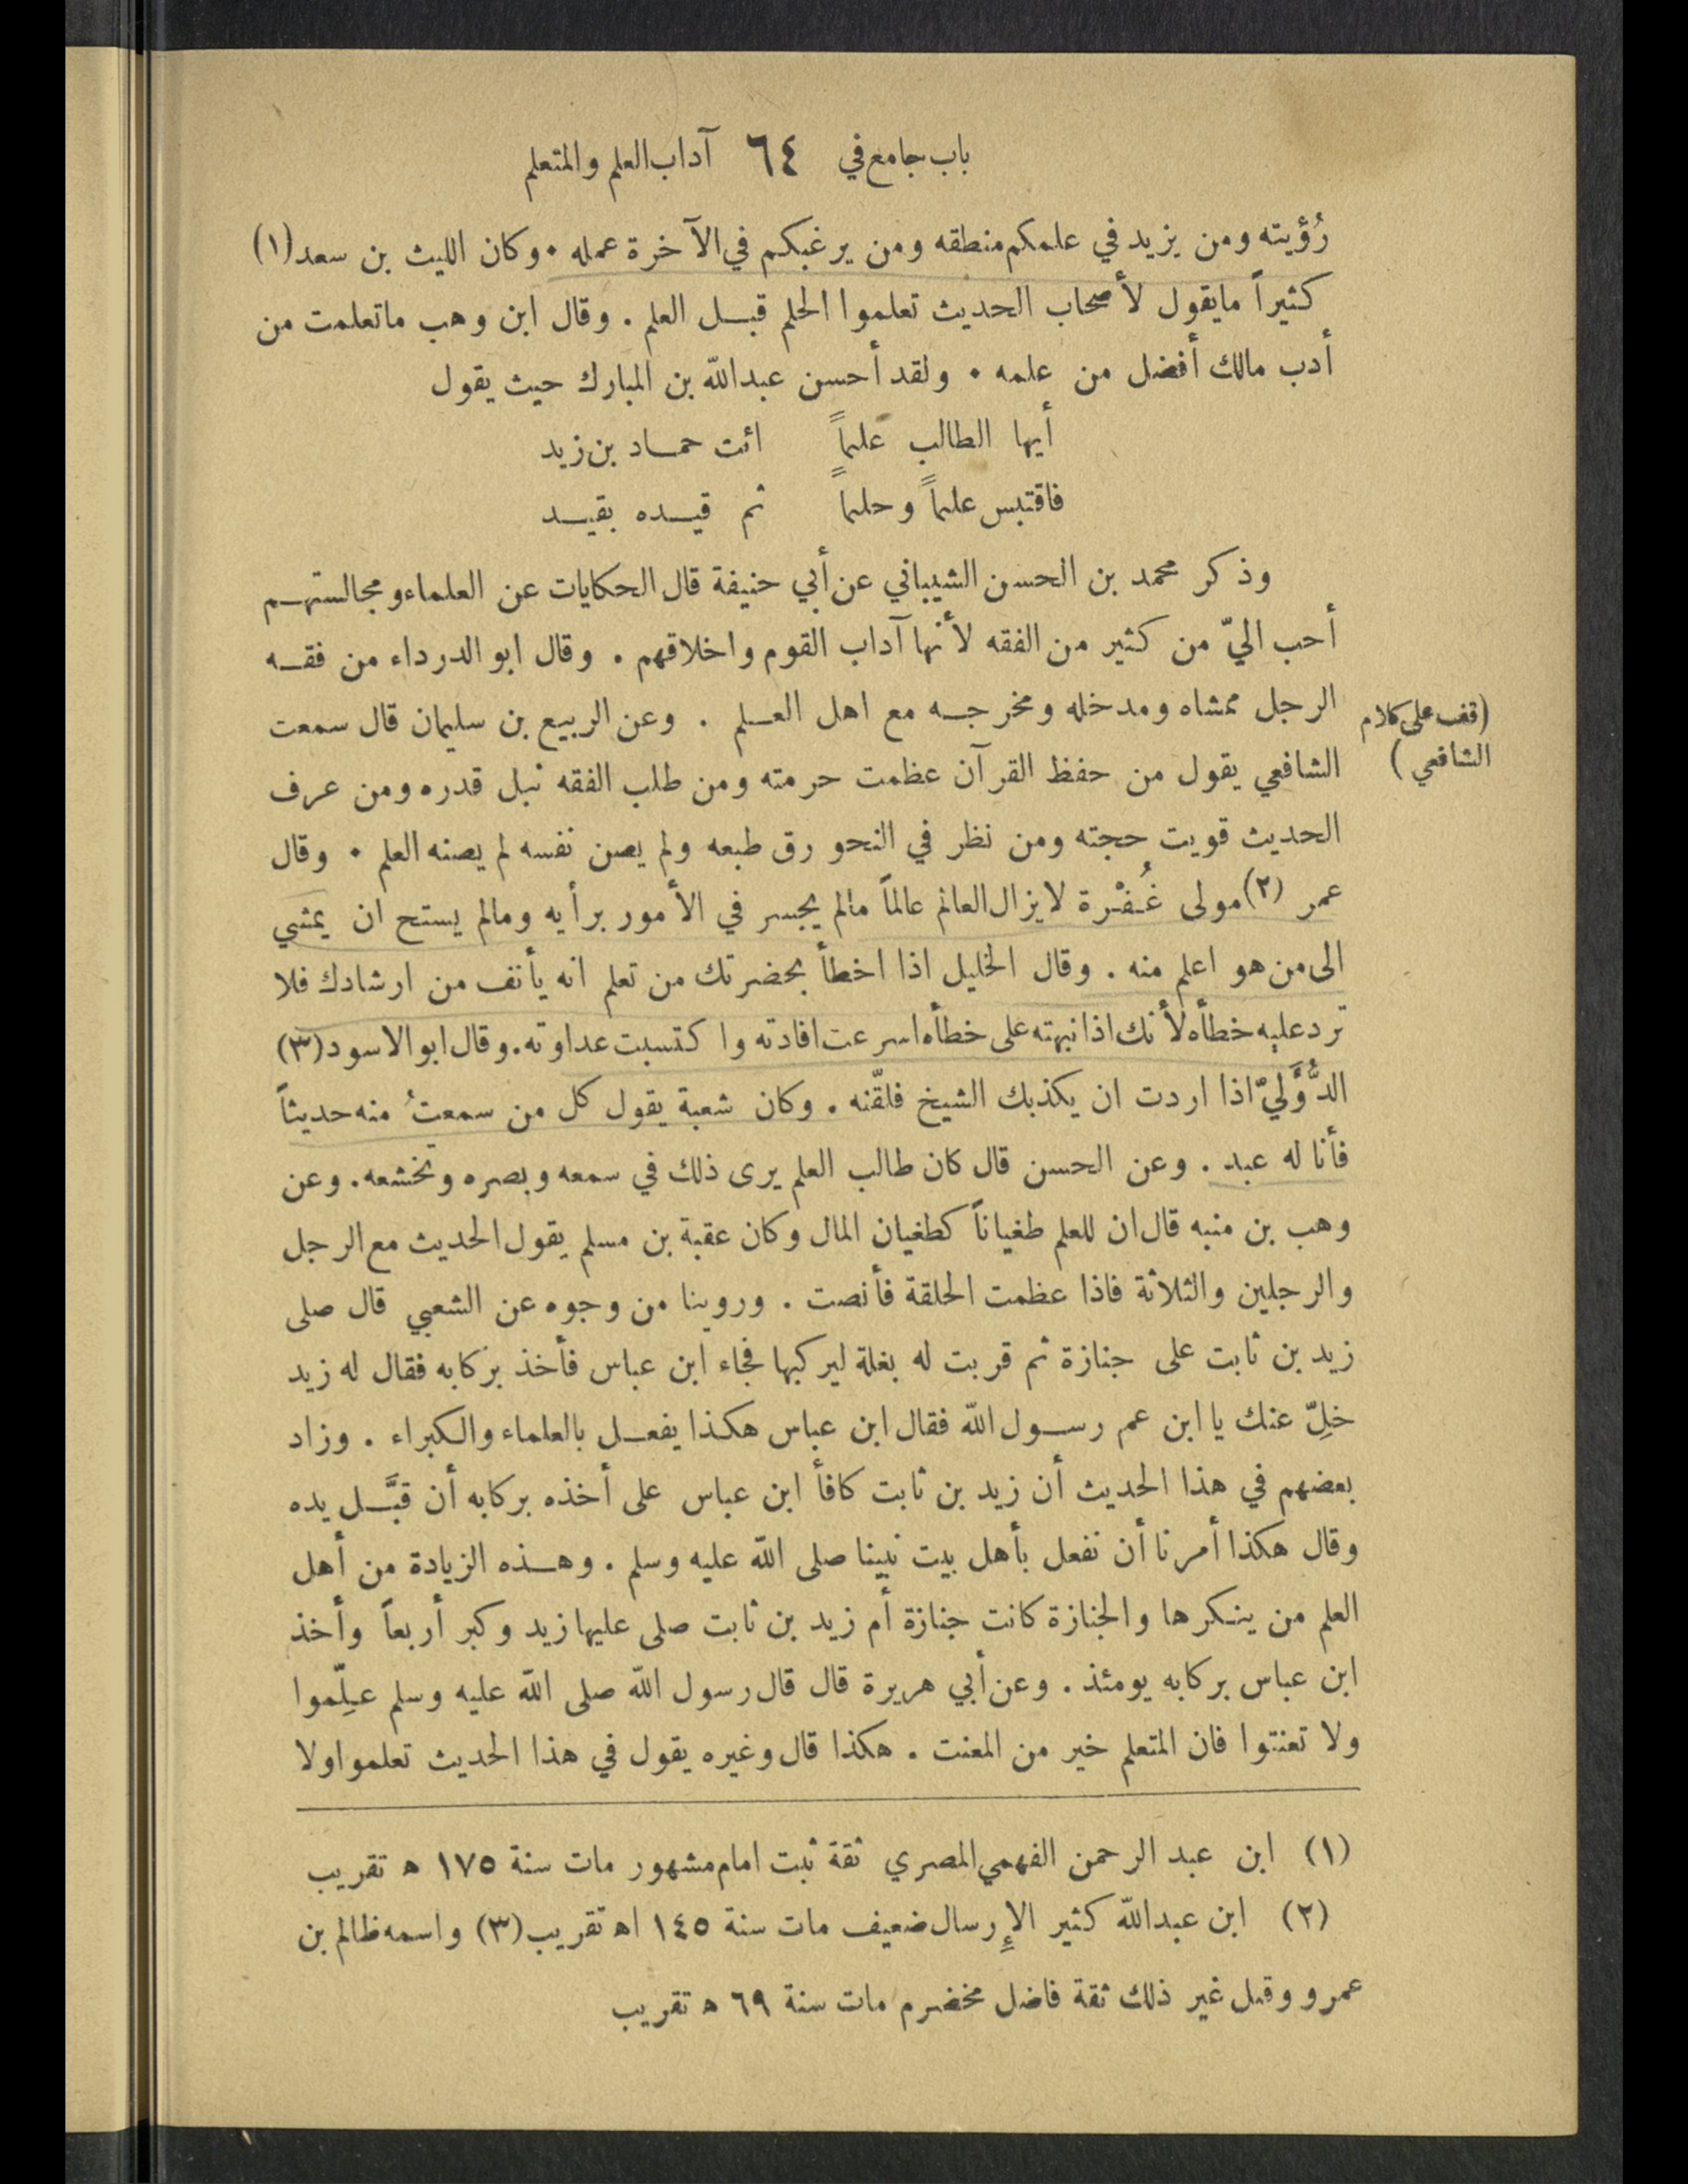 باب جامع في ٦٤ آداب العلم والمتعلم
رُؤيته ومن يزيد في علمكم منطقه ومن يرغبكم في الآخرة عمله . وكان الليث بن سعد (١)
كثيراً مايقول لأصحاب الحديث تعلموا الحلم قبل العلم . وقال ابن وهب ماتعلمت من
أدب مالك أفضل من علمه . ولقد أحسن عبدالله بن المبارك حيث يقول
أيها الطالب علماً ائت حماد بن زيد
فاقتبس علماً وحلماً ثم قيده بقيد
وذكر محمد بن الحسن الشيباني عن أبي حنيفة قال الحكايات عن العلماء ومجالستهم
أحب اليّ من كثير من الفقه لأنها آداب القوم واخلاقهم . وقال ابو الدرداء من فقه
الرجل ممشاه ومدخله ومخرجه مع اهل العلم . وعن الربيع بن سليمان قال سمعت
(قف على كلام
الشافعي يقول من حفظ القرآن عظمت حرمته ومن طلب الفقه نبل قدره ومن عرف
الشافعي)
الحديث قويت حجته ومن نظر في النحو رق طبعه ولم يصن نفسه لم يصنه العلم . وقال
عمر (٢) مولى غُفْرة لايزال العالم عالماً مالم يجسر في الأمور برأيه ومالم يستح ان يمشي
الى من هو اعلم منه . وقال الخليل اذا اخطأ بحضرتك من تعلم انه يأنف من ارشادك فلا
ترد عليه خطأه لأنك اذا نبهته على خطأه اسرعت افادته واكتسبت عداوته . وقال ابو الاسود (٣)
الدُّؤَليّ اذا اردت ان يكذبك الشيخ فلقّنه . وكان شعبة يقول كل من سمعتُ منه حديثاً
فأنا له عبد . وعن الحسن قال كان طالب العلم يرى ذلك في سمعه وبصره وتخشعه . وعن
وهب بن منبه قال ان للعلم طغياناً كطغيان المال وكان عقبة بن مسلم يقول الحديث مع الرجل
والرجلين والثلاثة فاذا عظمت الحلقة فأنصت . وروينا من وجوه عن الشعبي قال صلى
زيد بن ثابت على جنازة ثم قربت له بغلة ليركبها فجاء ابن عباس فأخذ بركابه فقال له زيد
خلِّ عنك يا ابن عم رسول الله فقال ابن عباس هكذا يفعل بالعلماء والكبراء . وزاد
بعضهم في هذا الحديث أن زيد بن ثابت كافأ ابن عباس على أخذه بركابه أن قبَّل يده
وقال هكذا أمرنا أن نفعل بأهل بيت نبينا صلى الله عليه وسلم . وهذه الزيادة من أهل
العلم من ينكرها والجنازة كانت جنازة أم زيد بن ثابت صلى عليها زيد وكبر أربعاً وأخذ
ابن عباس بركابه يومئذ . وعن أبي هريرة قال قال رسول الله صلى الله عليه وسلم علِّموا
ولا تعنتوا فان المتعلم خير من المعنت . هكذا قال وغيره يقول في هذا الحديث تعلموا ولا
(١) ابن عبد الرحمن الفهمي المصري ثقة ثبت امام مشهور مات سنة ١٧٥ ه تقريب
(٢) ابن عبدالله كثير الإرسال ضعيف مات سنة ١٤٥ اه تقريب (٣) واسمه ظالم بن
عمرو وقيل غير ذلك ثقة فاضل مخضرم مات سنة ٦٩ ه تقريب